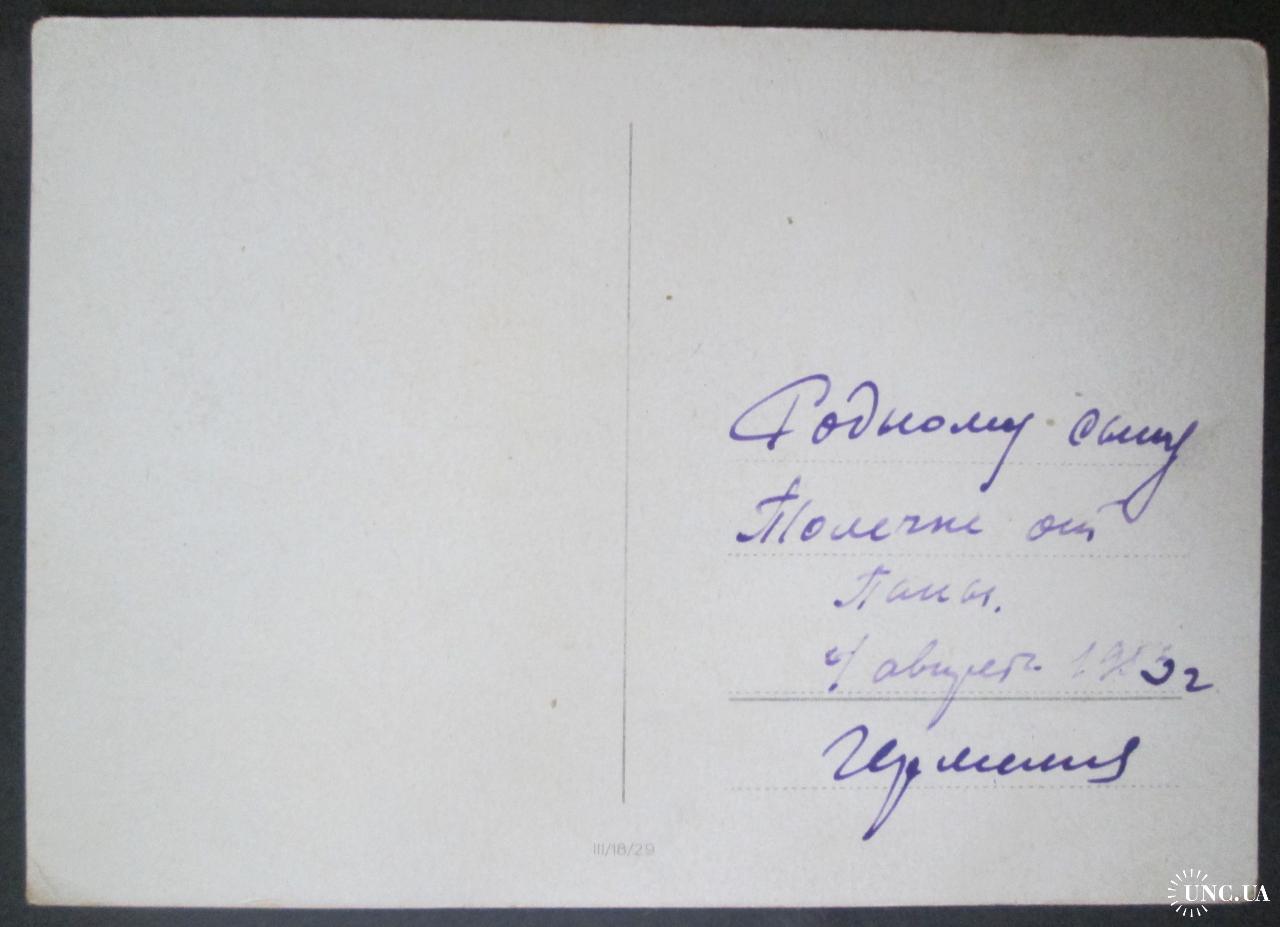 Родному сыну
Толечке от
Папы.
4 августа 1953 г
Германия
III/18/29
UNC.UA